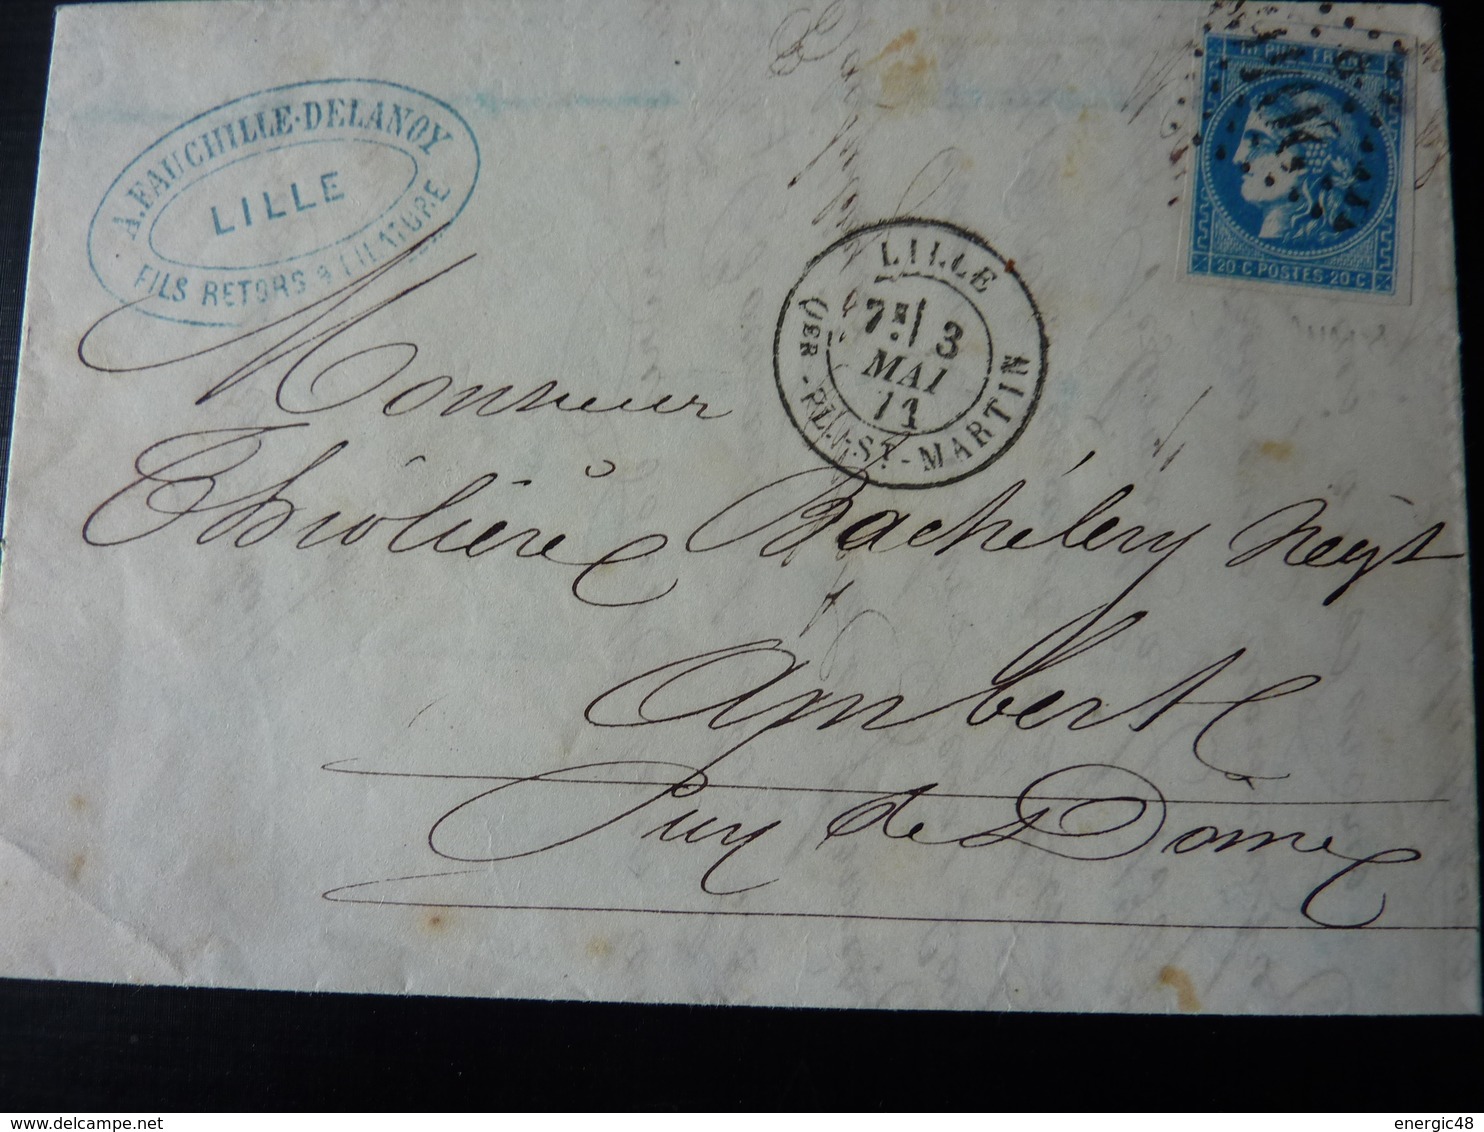 A. FAUCHILLE-DELANOY
LILLE
FILS RETORS & FILATURE
RÉPUB. FRANC.
20 C POSTES 20 C
LILLE
7E/ 3
MAI
71
QER-PLE-ST-MARTIN
Monsieur
Thiolière Bachélery Negt
Ambert
Puy de Dôme
delcampe.net
energic48